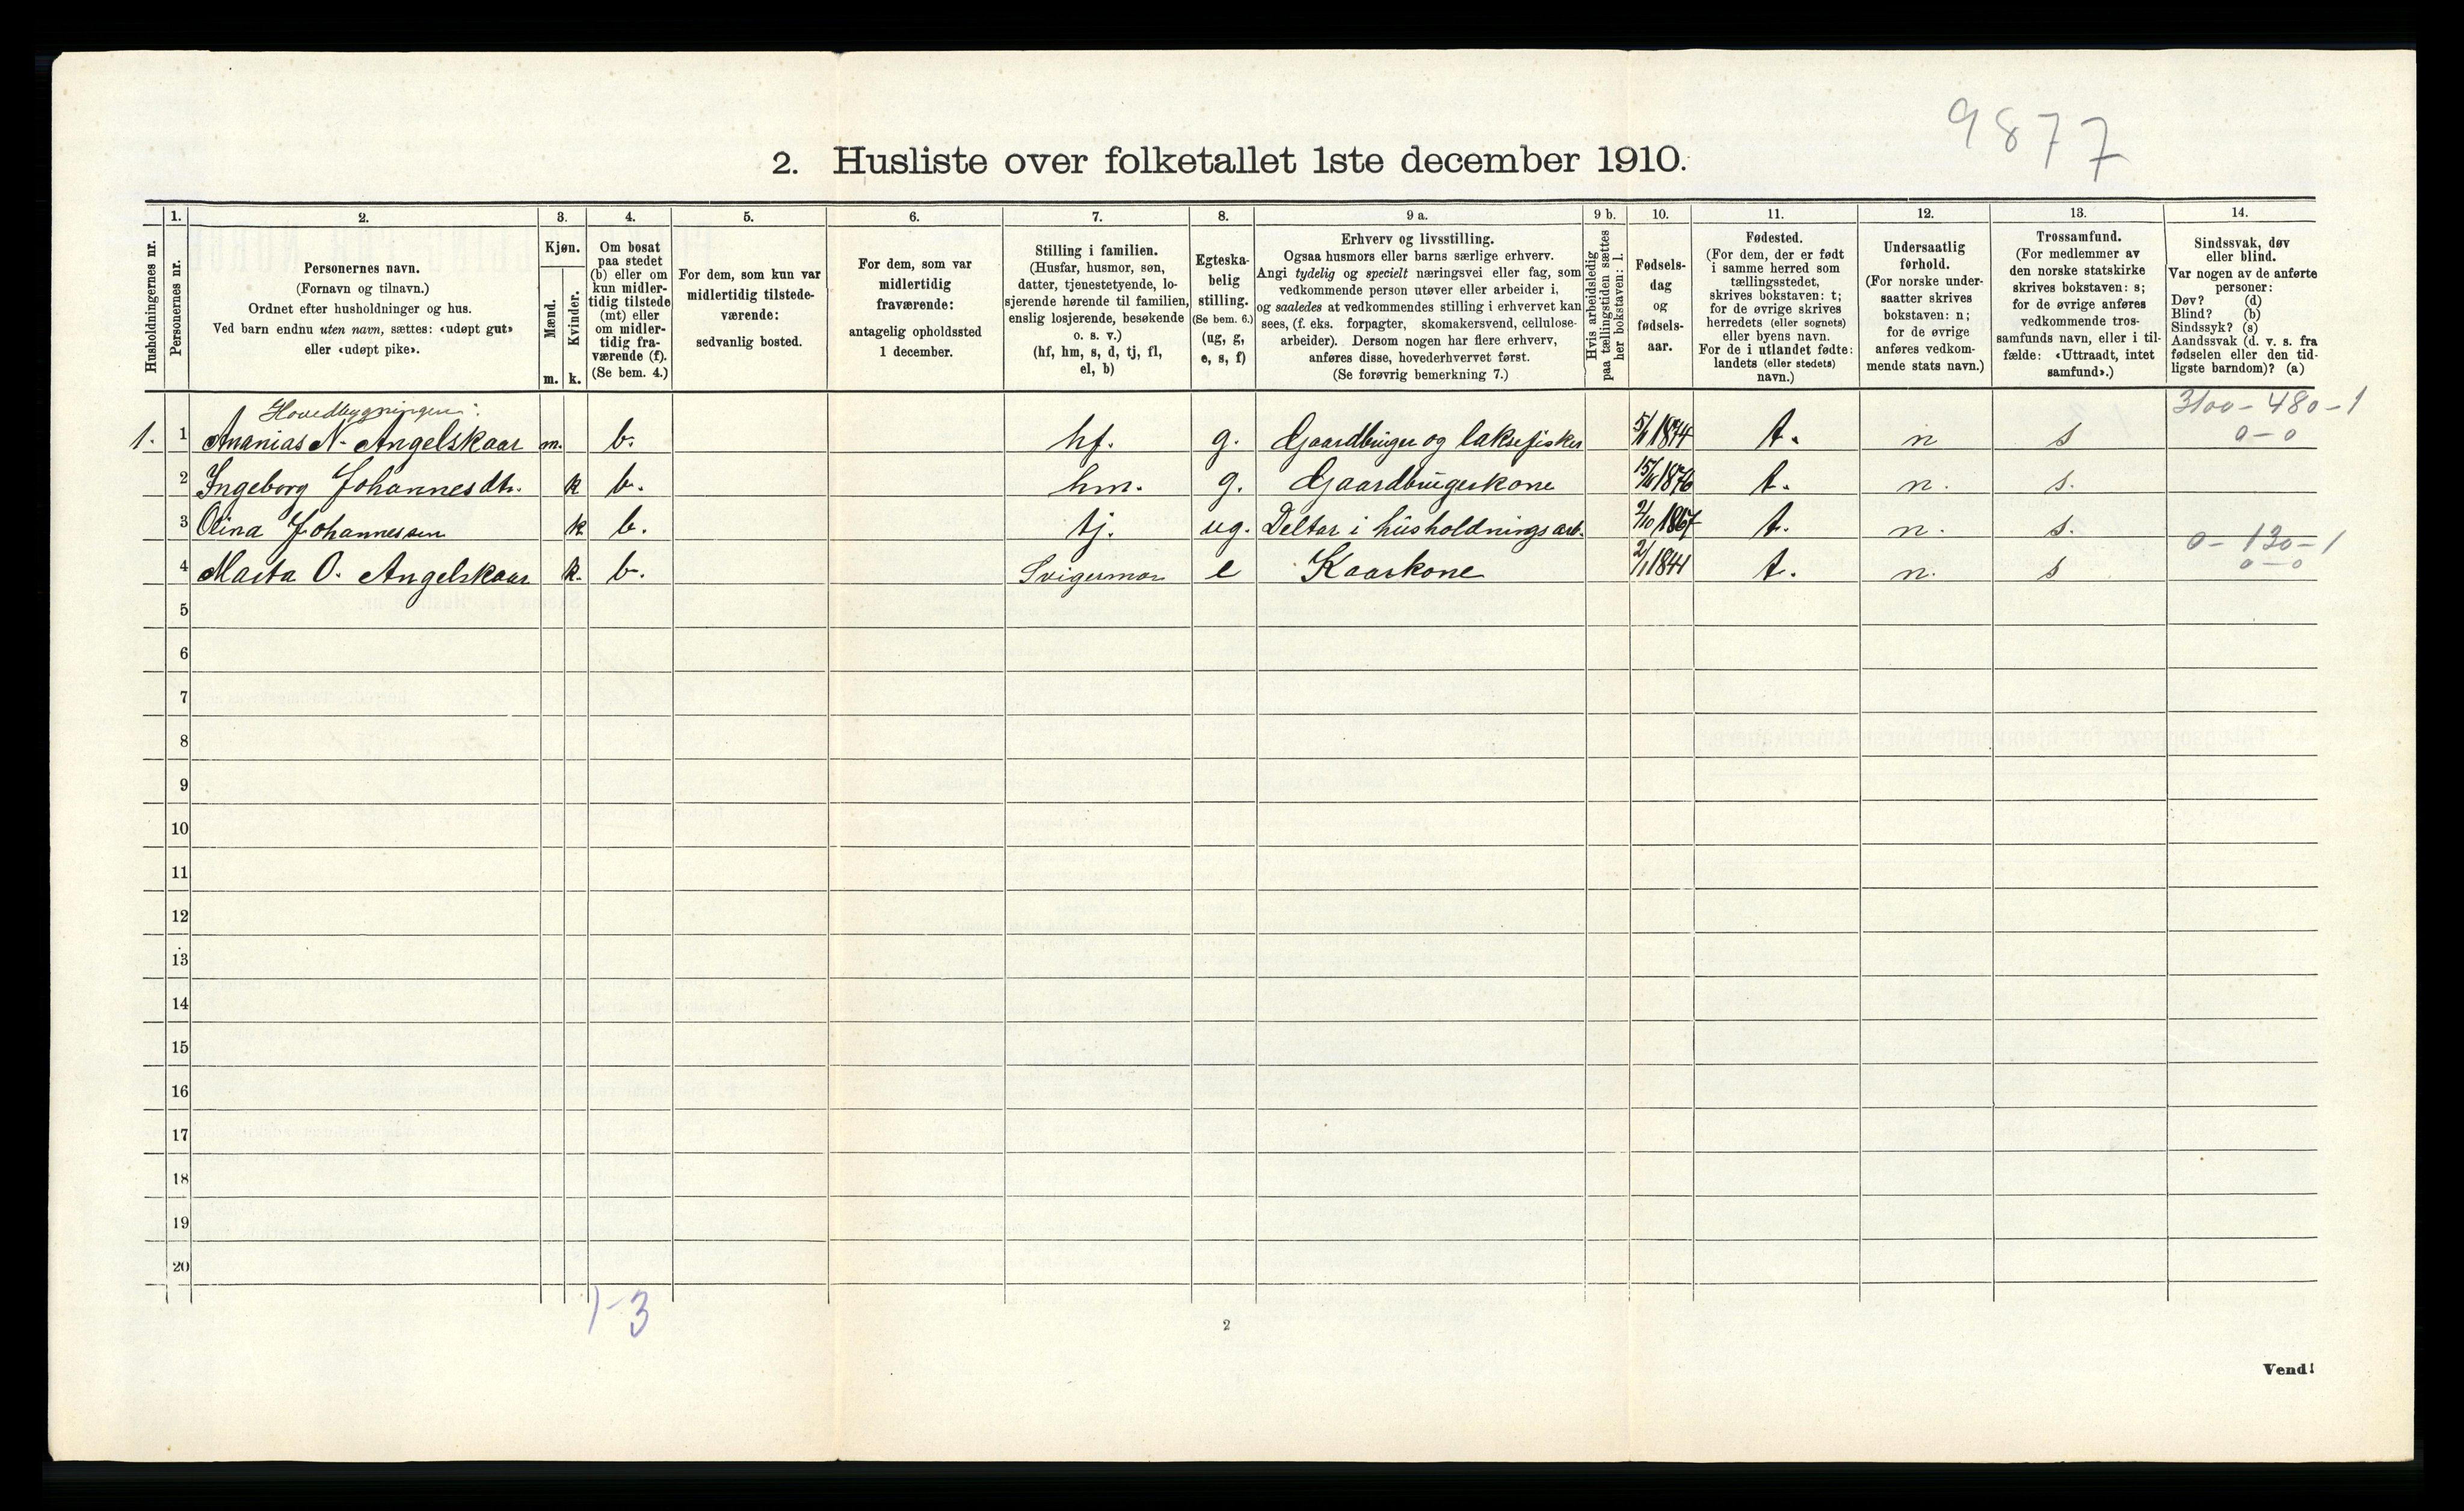 9877
2. Husliste over folketallet 1ste december 1910.
Husholdningernes nr.
1.
Personernes nr.
2.
Personernes navn.
(Fornavn og tilnavn.)
Ordnet efter husholdninger og hus.
Ved barn endnu uten navn, sættes: «udøpt gut»
eller «udøpt pike».
3.
Kjøn.
Mænd.
Kvinder.
m. k.
4.
Om bosat
paa stedet
(b) eller om
kun midler-
tidig tilstede
(mt) eller
om midler-
tidig fra-
værende (f).
(Se bem. 4.)
5.
For dem, som kun var
midlertidig tilstede-
værende:
sedvanlig bosted.
6.
For dem, som var
midlertidig
fraværende:
antagelig opholdssted
1 december.
7.
Stilling i familien.
(Husfar, husmor, søn,
datter, tjenestetyende, lo-
sjerende hørende til familien,
enslig losjerende, besøkende
o. s. v.)
(hf, hm, s, d, tj, fl,
el, b)
8.
Egteska-
belig
stilling.
(Se bem. 6.)
(ug, g,
e, s, f)
9 a.
Erhverv og livsstilling.
Ogsaa husmors eller barns særlige erhverv.
Angi tydelig og specielt næringsvei eller fag, som
vedkommende person utøver eller arbeider i,
og saaledes at vedkommendes stilling i erhvervet kan
sees, (f. eks. forpagter, skomakersvend, cellulose-
arbeider). Dersom nogen har flere erhverv,
anføres disse, hovederhvervet først.
(Se forøvrig bemerkning 7.)
9 b.
Hvis arbeidsledig
paa tællingstiden sættes
her bokstaven: l.
10.
Fødsels-
dag
og
fødsels-
aar.
11.
Fødested.
(For dem, der er født
i samme herred som
tællingsstedet,
skrives bokstaven: t;
for de øvrige skrives
herredets (eller sognets)
eller byens navn.
For de i utlandet fødte:
landets (eller stedets)
navn.)
12.
Undersaatlig
forhold.
(For norske under-
saatter skrives
bokstaven: n;
for de øvrige
anføres vedkom-
mende stats navn.)
13.
Trossamfund.
(For medlemmer av
den norske statskirke
skrives bokstaven: s;
for de øvrige anføres
vedkommende tros-
samfunds navn, eller i til-
fælde: «Uttraadt, intet
samfund».)
14.
Sindssvak, døv
eller blind.
Var nogen av de anførte
personer:
Døv? (d)
Blind? (b)
Sindssyk? (s)
Aandssvak (d. v. s. fra
fødselen eller den tid-
ligste barndom)? (a)
Hovedbygningen: 3100 - 480 - 1
1. 1 Ananias N. Angelskaar m. b. hf. g. Gaardbruger og laksefisker 1874 t. n s 0 - 0
2 Ingeborg Johannesdtr. k b. hm. g. Gaardbrugerkone 1876 t. n. s.
3 Olina Johannessen k b. tj. ug. Deltar i husholdningsarb. 2/10 1867 t. n. s.
0 - 130 - 1
4 Marta O. Angelskaar k. b. Svigermor e Kaarkone 2/1 1841 t. n. s 0 - 0
5
6
7
8
9
10
11
12
13
14
15
16
17
18
19
20
1-3
2
Vend!